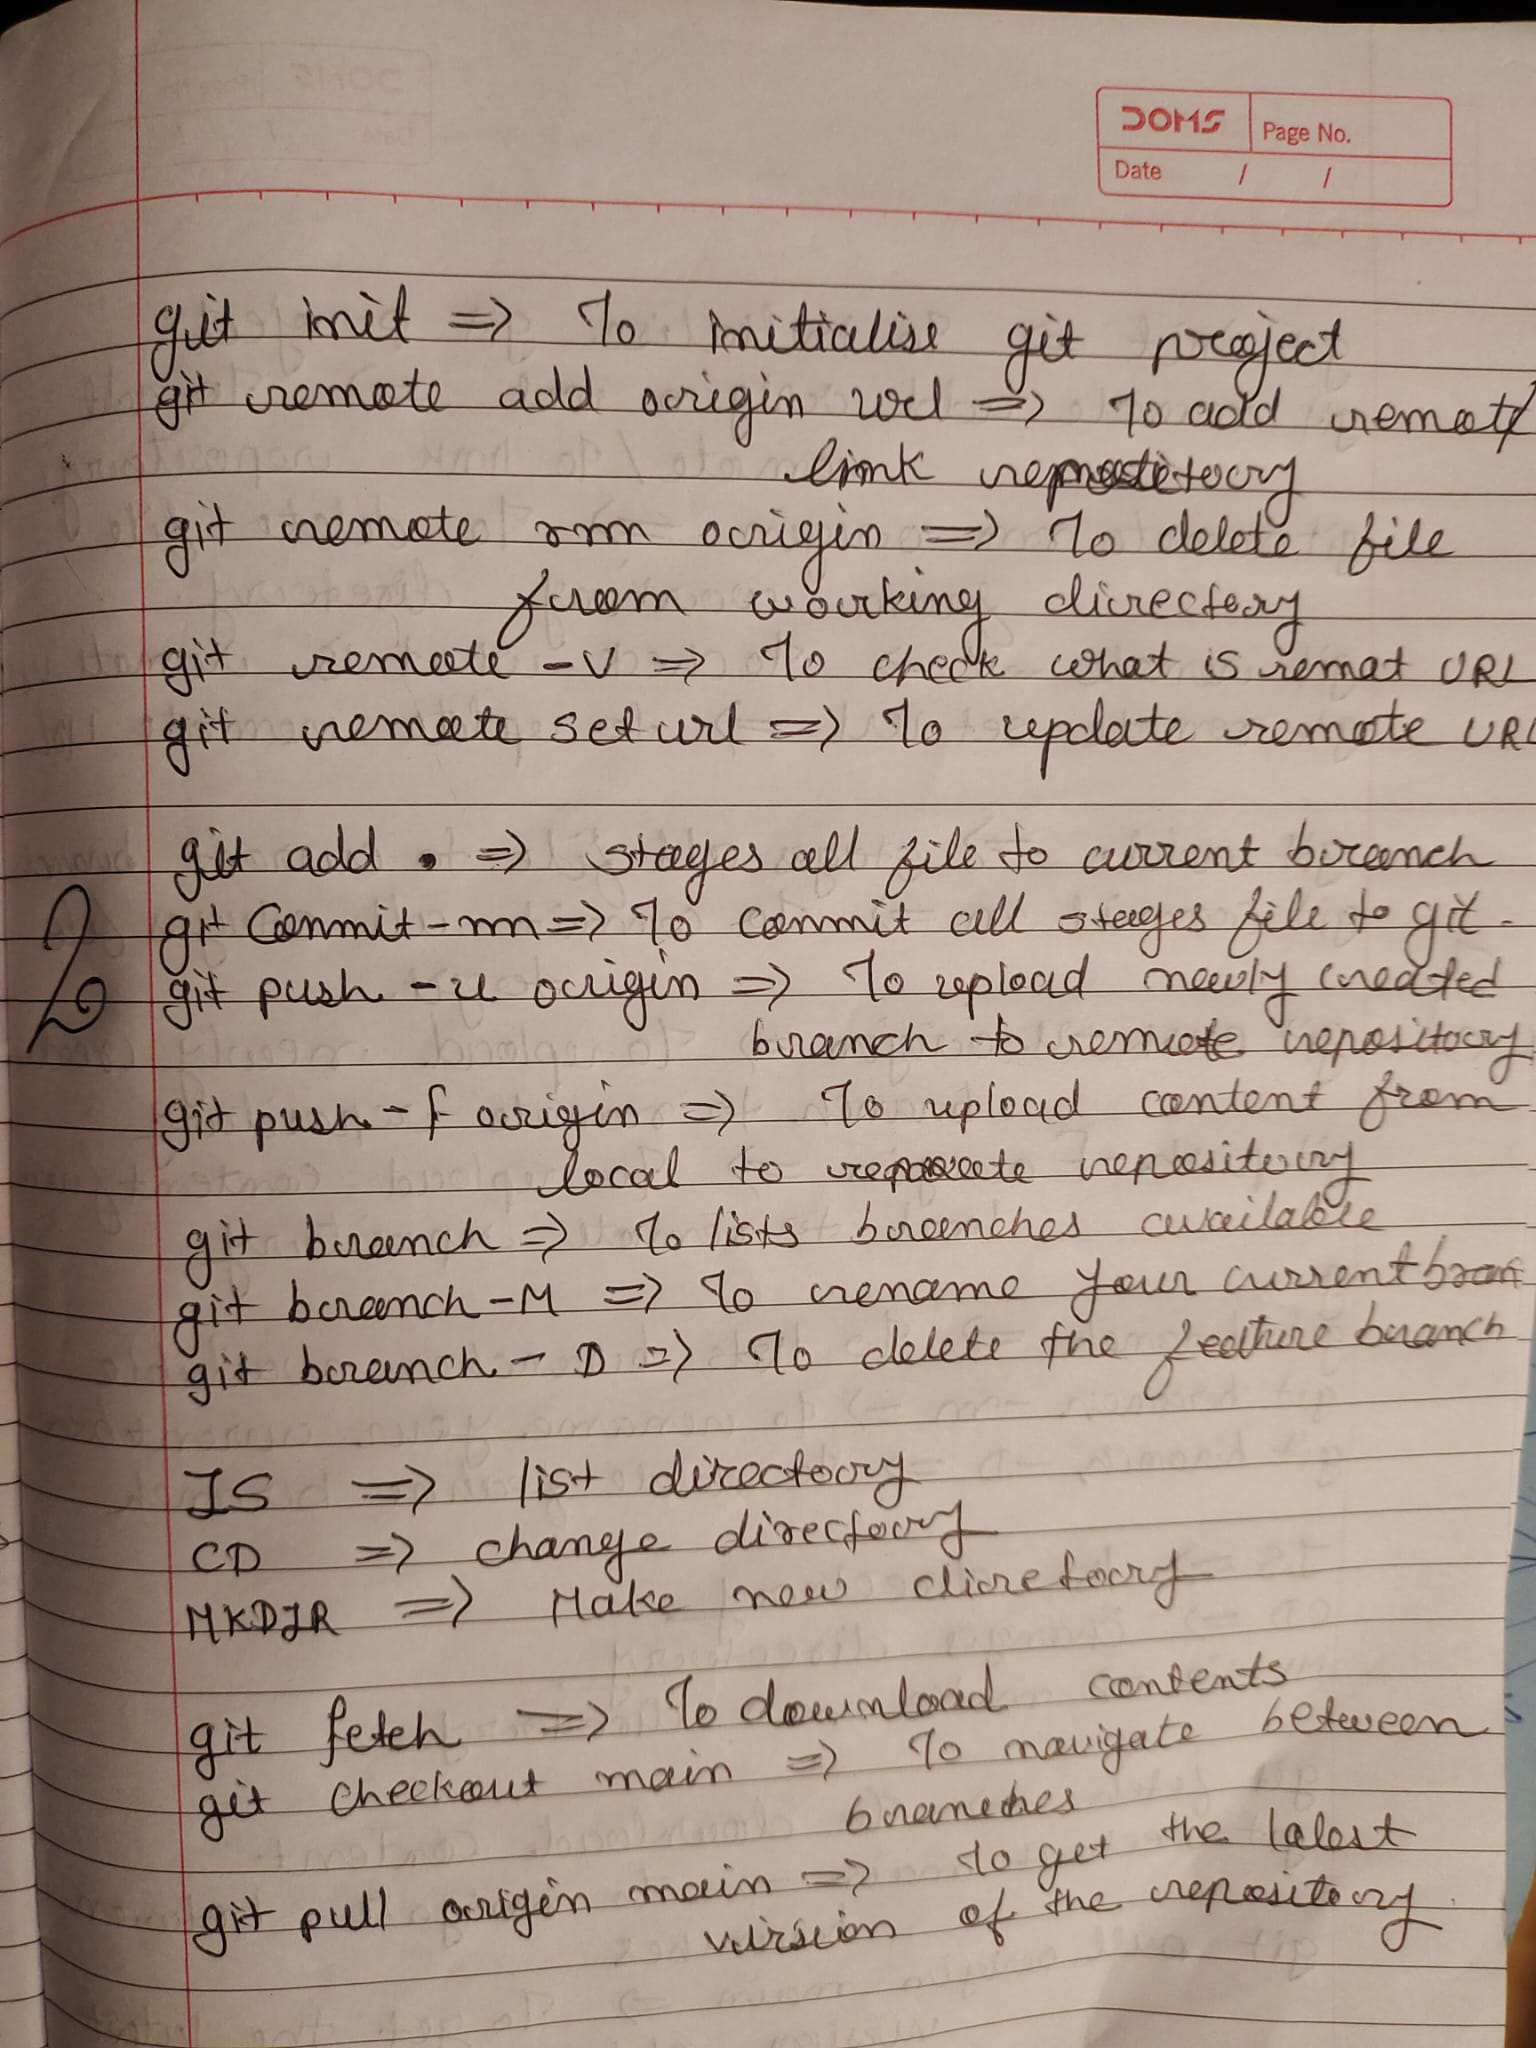 DOMS Page No.
Date / /
git init => To initialise git project
git remote add origin url => To add remot
link repository
git remote rm origin => To delete file
from working directory
git remote -v => To check what is remot URL
git remote set url => To update remote URL
git add . => stages all file to current branch
git Commit -m => To commit all stages file to git.
2
git push -u origin => To upload newly created
branch to remote repository
git push -f origin => To upload content from
local to remote repository
git branch => To lists branches available
git branch -M => To rename your current bran
git branch -D => To delete the feature branch
IS => list directory
CD => change directory
MKDIR => Make new diretory
git fetch => To download contents
git checkout main => To navigate between
branches
git pull origin main => to get the latest
virsion of the repository.